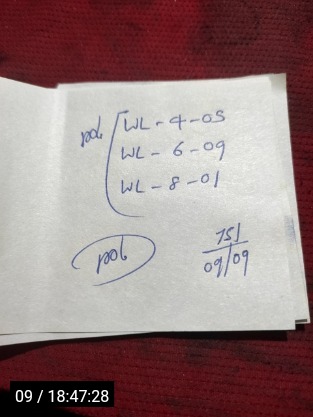 WL - 4 - 05
WL - 6 - 09
WL - 8 - 01
151
09/09
09 / 18:47:28